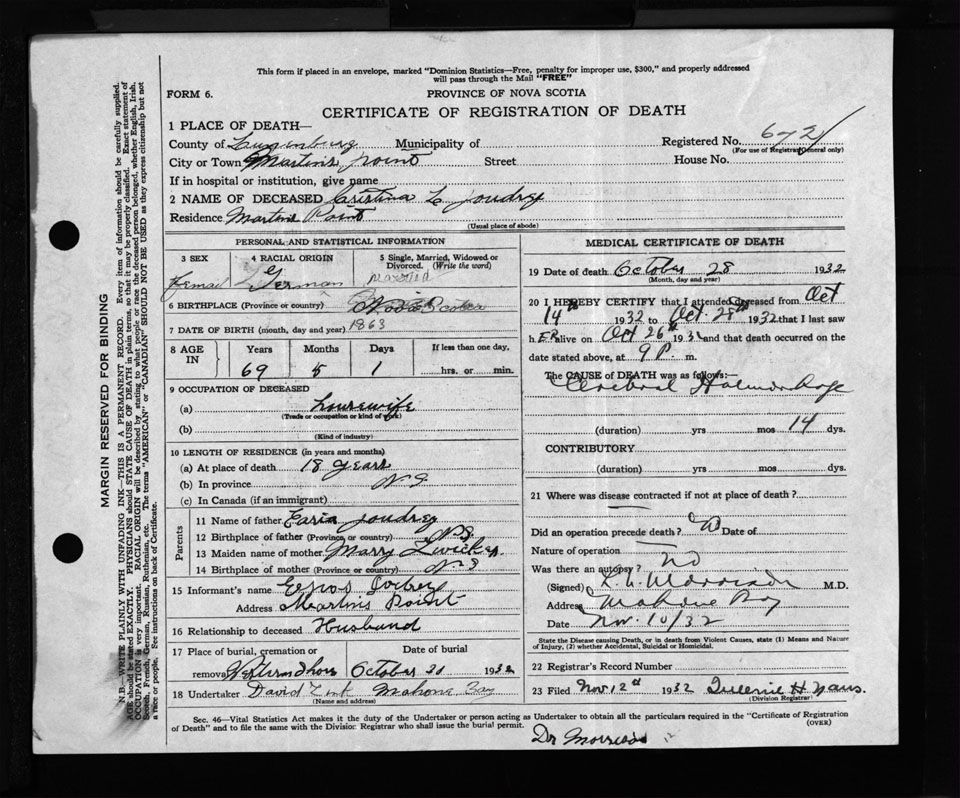 This form if placed in an envelope, marked "Dominion Statistics—Free, penalty for improper use, $300," and properly addressed
will pass through the Mail "FREE"
FORM 6.
PROVINCE OF NOVA SCOTIA
CERTIFICATE OF REGISTRATION OF DEATH
1 PLACE OF DEATH—
Registered No. 672
(For use of Registrar General only)
County of Lunenburg Municipality of
City or Town Martins point Street House No.
If in hospital or institution, give name
2 NAME OF DECEASED Cristina L Joudrey
Residence Martins Point
(Usual place of abode)
PERSONAL AND STATISTICAL INFORMATION
3 SEX
Femail
4 RACIAL ORIGIN
German
5 Single, Married, Widowed or Divorced. (Write the word)
Married
6 BIRTHPLACE (Province or country) Nova Scotia
7 DATE OF BIRTH (month, day and year) 1863
8 AGE IN Years Months Days If less than one day.
69 5 1 hrs. or min.
9 OCCUPATION OF DECEASED
(a) housewife
(Trade or occupation or kind of work)
(b)
(Kind of industry)
10 LENGTH OF RESIDENCE (in years and months)
(a) At place of death 18 years
(b) In province N S
(c) In Canada (if an immigrant)
Parents
11 Name of father Joudrey
12 Birthplace of father (Province or country) N S
13 Maiden name of mother Mary Zwicker
14 Birthplace of mother (Province or country) N S
15 Informant's name
Address Martins Point
16 Relationship to deceased Husband
17 Place of burial, cremation or removal
Date of burial
October 1932
18 Undertaker David Zink Mahone Bay
(Name and address)
MEDICAL CERTIFICATE OF DEATH
19 Date of death October 28 1932
(Month, day and year)
20 I HEREBY CERTIFY that I attended deceased from Oct
14th 1932 to Oct. 28th 1932 that I last saw
h ER alive on Oct 26th 1932 and that death occurred on the
date stated above, at 9 P. m.
The CAUSE of DEATH was as follows:
Cerebral
(duration) yrs mos 14 dys.
CONTRIBUTORY
(duration) yrs mos dys.
21 Where was disease contracted if not at place of death?
Did an operation precede death? No Date of
Nature of operation
Was there an autopsy? No
(Signed) M.D.
Address Mahone Bay
Date Nov. 10/32
State the Disease causing Death, or in death from Violent Causes, state (1) Means and Nature
of Injury, (2) whether Accidental, Suicidal or Homicidal.
22 Registrar's Record Number
23 Filed Nov 12th 1932
(Division Registrar)
Sec. 46—Vital Statistics Act makes it the duty of the Undertaker or person acting as Undertaker to obtain all the particulars required in the "Certificate of Registration
of Death" and to file the same with the Division Registrar who shall issue the burial permit.
(OVER)
Dr
MARGIN RESERVED FOR BINDING
N.B.—WRITE PLAINLY WITH UNFADING INK—THIS IS A PERMANENT RECORD. Every item of information should be carefully supplied.
AGE should be stated EXACTLY. PHYSICIANS should STATE CAUSE OF DEATH in plain terms, so that it may be properly classified. Exact statement of
OCCUPATION is very important. RACIAL ORIGIN will be described by stating to what people or race the deceased person belonged, whether English, Irish,
Scotch, French, German, Russian, Ruthenian, etc. The terms "AMERICAN" or "CANADIAN" SHOULD NOT BE USED as they express citizenship but not
a race or people. See instructions on back of Certificate.